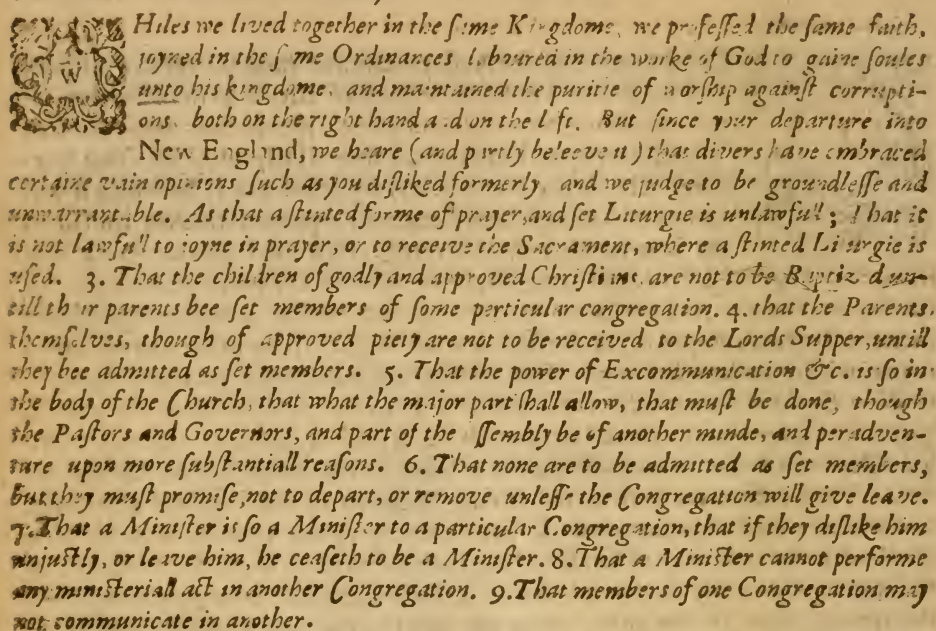 WHiles we lived together in the same Kingdome, we professed the same faith,
joyned in the same Ordinances laboured in the worke of God to gaine soules
unto his kingdome, and maintained the puritie of worship against corrupti-
ons both on the right hand and on the left. But since your departure into
New England, we heare (and partly beleeve it) that divers have embraced
certaine vain opinions such as you disliked formerly and we judge to be groundlesse and
unwarrantable. As that a stinted forme of prayer, and set Liturgie is unlawfull; That it
is not lawfull to joyne in prayer, or to receive the Sacrament, where a stinted Liturgie is
used. 3. That the children of godly and approved Christians are not to be Baptized un-
till their parents bee set members of some perticular congregation. 4. that the Parents
themselves, though of approved piety are not to be received to the Lords Supper, untill
they bee admitted as set members. 5. That the power of Excommunication &c. is so in
the body of the Church, that what the major part shall allow, that must be done, though
the Pastors and Governors, and part of the Assembly be of another minde, and peradven-
ture upon more substantiall reasons. 6. That none are to be admitted as set members,
but they must promise, not to depart, or remove unlesse the Congregation will give leave.
7. That a Minister is so a Minister to a particular Congregation, that if they dislike him
unjustly, or leave him, he ceaseth to be a Minister. 8. That a Minister cannot performe
any ministeriall act in another Congregation. 9. That members of one Congregation may
not communicate in another.